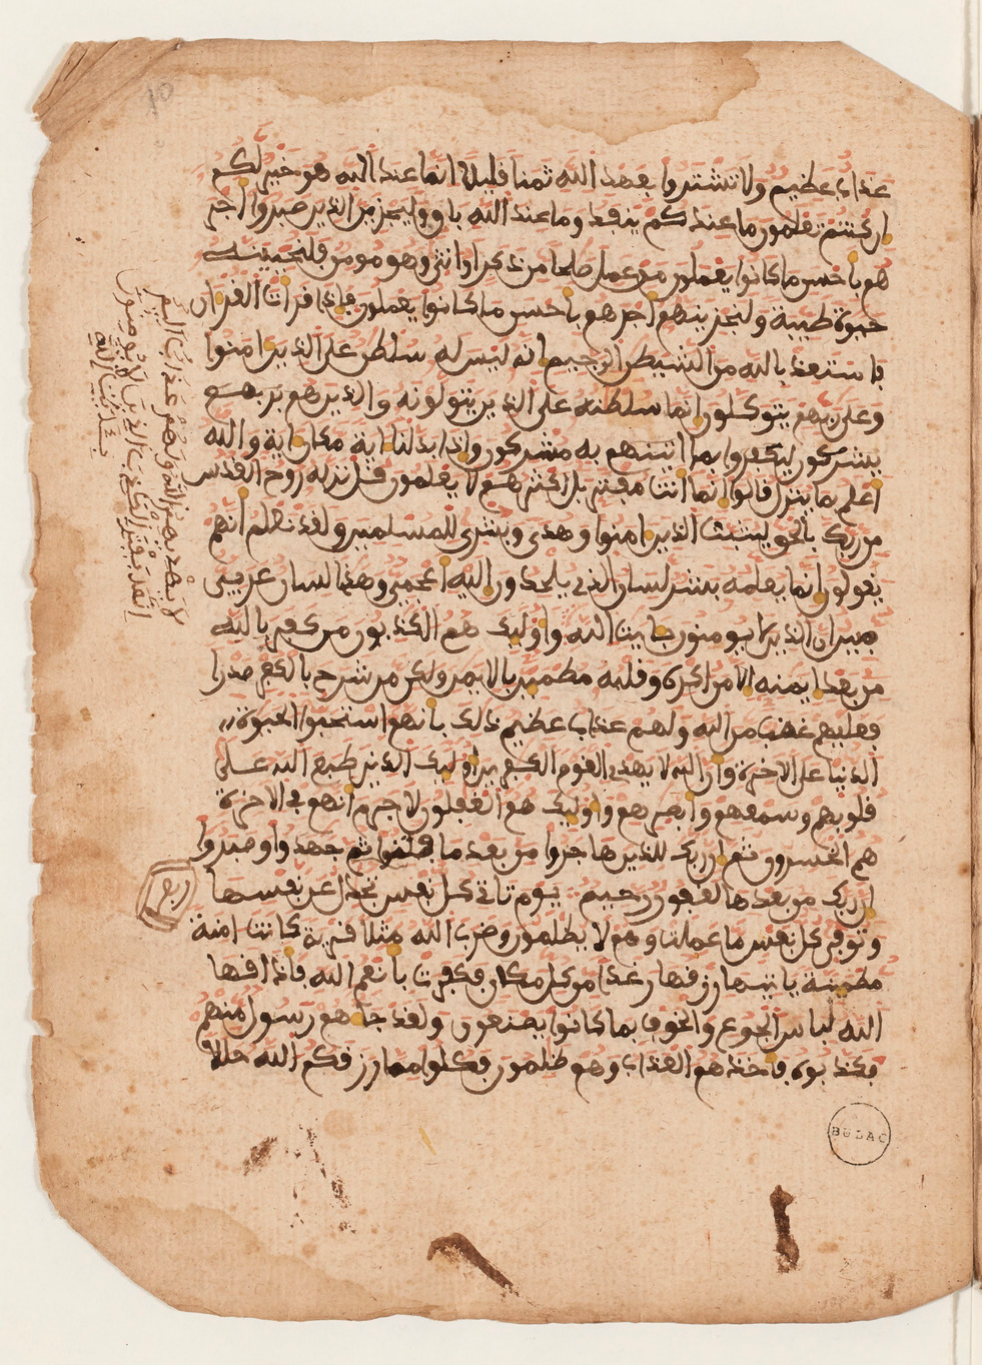 عذاب عظيم ولا تشتروا بعهد الله ثمنا قليلا انما عند الله هو خير لكم
ان كنتم تعلمون ما عندكم ينفد وما عند الله باق وليجزين الذين صبروا اجر
هم باحسن ما كانوا يعملون من عمل صلحا من ذكر او انثى وهو مومن فلنحيينه
حيوة طيبة ولنجزينهم اجرهم باحسن ما كانوا يعملون فاذا قرات القران
فاستعذ بالله من الشيطن الرجيم انه ليس له سلطن على الذين امنوا
وعلى ربهم يتوكلون انما سلطنه على الذين يتولونه والذين هم بربهم
يشركون ليكفروا بما اتينهم به مشركون واذا بدلنا اية مكان اية والله
اعلم بما ينزل قالوا انما انت مفتر بل اكثرهم لا يعلمون قل نزله روح القدس
من ربك بالحق ليثبت الذين امنوا وهدى وبشرى للمسلمين ولقد نعلم انهم
يقولون انما يعلمه بشر لسان الذى يلحدون اليه اعجمى وهذا لسان عربى
مبين ان الذين لا يومنون بايت الله واوليك هم الكذبون من كفر بالله
من بعد ايمنه الا من اكره وقلبه مطمين بالايمن ولكن من شرح بالكفر صدرا
فعليهم غضب من الله ولهم عذاب عظيم ذلك بانهم استحبوا الحيوة
الدنيا على الاخرة وان الله لا يهدى القوم الكفرين اوليك الذين طبع الله على
قلوبهم وسمعهم وابصرهم واوليك هم الغفلون لا جرم انهم فى الاخرة
هم الخسرون ثم ان ربك للذين هاجروا من بعد ما فتنوا ثم جهدوا وصبروا
ان ربك من بعدها لغفور رحيم يوم تاتى كل نفس تجدل عن نفسها
ربع
وتوفى كل نفس ما عملت وهم لا يظلمون وضرب الله مثلا قرية كانت امنة
مطمينة ياتيها رزقها رغدا من كل مكان فكفرت بانعم الله فاذاقها
الله لباس الجوع والخوف بما كانوا يصنعون ولقد جاهم رسول منهم
فكذبوه فاخذهم العذاب وهم ظلمون فكلوا مما رزقكم الله حللا
لا يهديهم الله ولهم عذاب اليم
انما يفترى الكذب الذين لا يومنون
بايت الله
10
BULAC